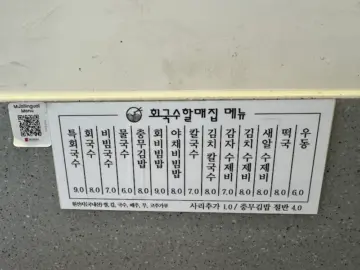 Multilingual
Menu
회국수할매집 메뉴
특회국수 9.0
회국수 8.0
비빔국수 7.0
물국수 6.0
충무김밥 8.0
회비빔밥 9.0
야채비빔밥 8.0
칼국수 7.0
김치 칼국수 8.0
감자 수제비 7.0
김치 수제비 8.0
새알 수제비 8.0
떡국 8.0
우동 6.0
원산지(국내산) 쌀, 김, 국수, 배추, 무, 고추가루
사리추가 1.0 / 충무김밥 절반 4.0